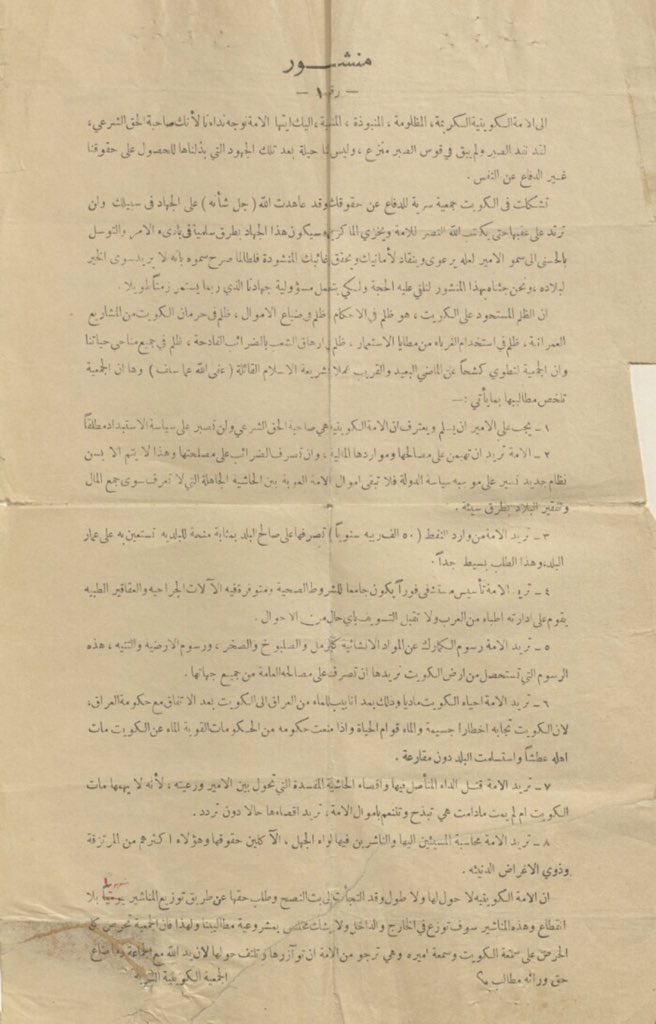 منشـــور
— رقم ١ —
الى الامة الكويتية الكريمة، المظلومة، المنبوذة، المنسية، اليك ايتها الامة نوجه نداءنا لأنك صاحبة الحق الشرعي،
لقد نفد الصبر ولم يبق في قوس الصبر منزع، وليس لنا حيلة بعد تلك الجهود التي بذلناها للحصول على حقوقنا
غير الدفاع عن النفس.
تشكلت في الكويت جمعية سرية للدفاع عن حقوقك وقد عاهدت الله (جل شأنه) على الجهاد في سبيلك ولن
ترتد على عقبها حتى يكتب الله النصر للامة ويخزي الماكرين وسيكون هذا الجهاد بطرق سلمية في بادىء الامر والتوسل
بالحسنى الى سمو الامير لعله يرعوى وينقاد لأمانيك ويحقق غائبك المنشودة فلطالما صرح سموه بانه لا يريد سوى الخير
لبلاده، ونحن جئناه بهذا المنشور لنلقي عليه الحجة ولكي يتحمل مسؤولية جهادنا الذي ربما يستمر زمناً طويلا.
ان الظلم المستحوذ على الكويت، هو ظلم في الاحكام، ظلم في ضياع الاموال، ظلم في حرمان الكويت من المشاريع
العمرانية، ظلم في استخدام الغرباء من مطايا الاستعمار، ظلم في ارهاق الشعب بالضرائب الفادحة، ظلم في جميع مناحي حياتنا
وان الجمعية لتطوي كشحاً عن الماضي البعيد والقريب عملا بشريعة الاسلام القائلة (عفى الله عما سلف) وها ان الجمعية
تلخص مطاليبها بمايأتي :—
١ - يجب على الامير ان يسلم ويعترف ان الامة الكويتية هي صاحبة الحق الشرعي ولن تصبر على سياسة الاستبداد مطلقاً
٢ - الامة تريد ان تهيمن على مصالحها ومواردها المالية، وان تصرف الضرائب على مصلحتها وهذا لا يتم الا بسن
نظام جديد تسير على موجبه سياسة الدولة فلا تبقى اموال الامة العوبة بين الحاشية الجاهلة التي لا تعرف سوى جمع المال
وتفقير البلاد بطرق سيئة.
٣ - تريد الامة من وارد النفط (٥٠ الف ربيه سنوياً) تصرفها على صالح البلد بمثابة منحة للبلديه تستعين به على عمار
البلد، وهذا الطلب بسيط جداً.
٤ - تريد الامة تأسيس مستشفى فوراً يكون جامعا للشروط الصحية ومتوفرة فيه الآلات الجراحيه والعقاقير الطبيه
يقوم على ادارته اطباء من العرب ولا تقبل التسويف باي حال من الاحوال.
٥ - تريد الامة رسوم الكمارك عن المواد الانشائية كالرمل والصلبوخ والصخر، ورسوم الارضية والتنيه، هذه
الرسوم التي تستحصل من ارض الكويت تريدها ان تصرف على مصالحه العامة من جميع جهاتها.
٦ - تريد الامة احياء الكويت ماديا وذلك بمد انابيب للماء من العراق الى الكويت بعد الاتفاق مع حكومة العراق،
لان الكويت تجابه اخطارا جسيمة والماء قوام الحياة واذا منعت حكومه من الحكومات القوية الماء عن الكويت مات
اهله عطشاً واستسلمت البلد دون مقارعة.
٧ - تريد الامة قتل الداء المتأصل فيها واقصاء الحاشية المفسدة التي تحول بين الامير ورعيته، لأنه لا يهمها مات
الكويت ام لم يمت مادامت هي تبذخ وتتنعم باموال الامة، تريد اقصاءها حالا دون تردد.
٨ - تريد الامة محاسبة المسيئين اليها والناشرين فيها لواء الجهل، الآكلين حقوقها وهؤلاء اكثرهم من المرتزقة
وذوي الاغراض الدنيئه.
ان الامة الكويتيه لا حول لها ولا طول وقد التجأت الى بث النصح وطلب حقها عن طريق توزيع المناشير بلا
انقطاع وهذه المناشير سوف توزع في الخارج والداخل ولا يشك مخلص بمشروعية مطاليبنا ولهذا فان الجمعية تحرص كل
الحرص على سمعة الكويت وسمعة اميره وهي ترجو من الامة ان توآزرها وتلتف حولها لان يد الله مع الجماعة وما ضاع
حق ورائه مطالب؟ الجمعية الكويتية السرية